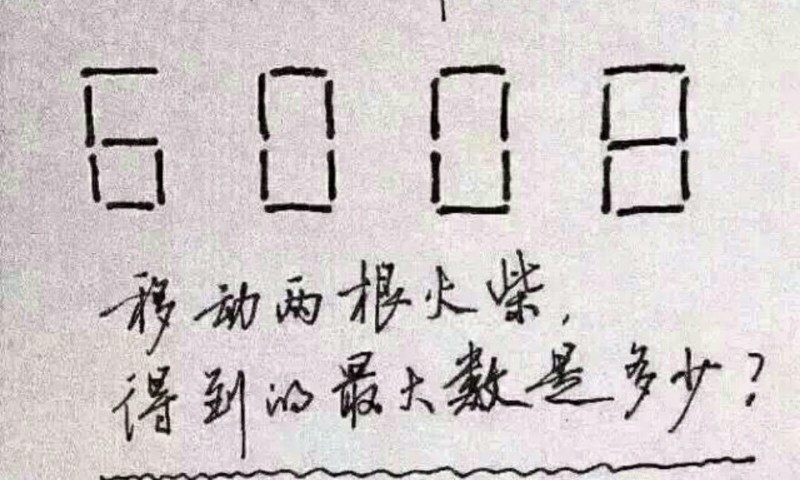 6008
移动两根火柴,
得到的最大数是多少?